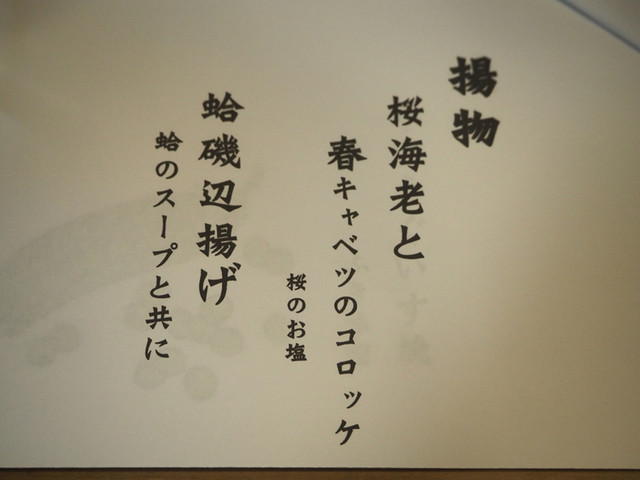 揚物
桜海老と
春キャベツのコロッケ
桜のお塩
蛤磯辺揚げ
蛤のスープと共に